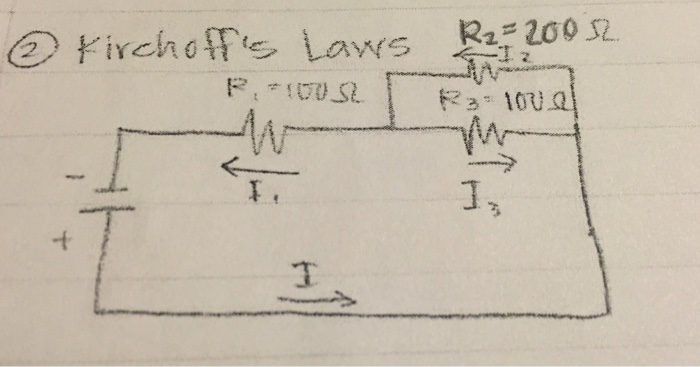 ② Kirchoff's Laws
R₂=200 Ω
I₂
R₁=100 Ω
R₃=100 Ω
I₁
I₃
-
+
I